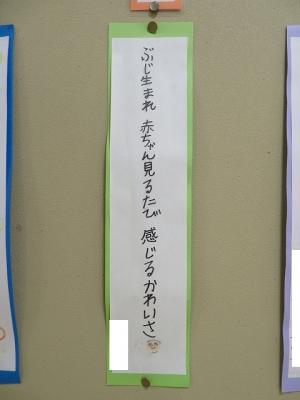 ぶじ生まれ 赤ちゃん見るたび 感じるかわいさ